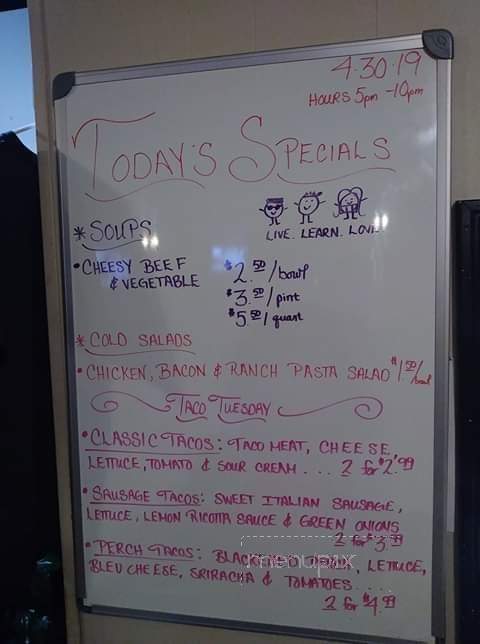 4.30.19
HOURS 5pm -10pm
TODAY'S SPECIALS
* SOUPS
LIVE. LEARN. LOVE.
• CHEESY BEEF & VEGETABLE
$2.50/bowl
$3.50/pint
$5.50/quart
* COLD SALADS
• CHICKEN, BACON & RANCH PASTA SALAD $1.50/bowl
TACO TUESDAY
• CLASSIC TACOS: TACO MEAT, CHEESE
LETTUCE, TOMATO & SOUR CREAM ... 2 for $2.99
• SAUSAGE TACOS: SWEET ITALIAN SAUSAGE,
LETTUCE, LEMON RICOTTA SAUCE & GREEN ONIONS
2 for $3.99
• PERCH TACOS: BLACKENED PERCH, LETTUCE,
BLEU CHEESE, SRIRACHA & TOMATOES ...
2 for $4.99
menupix